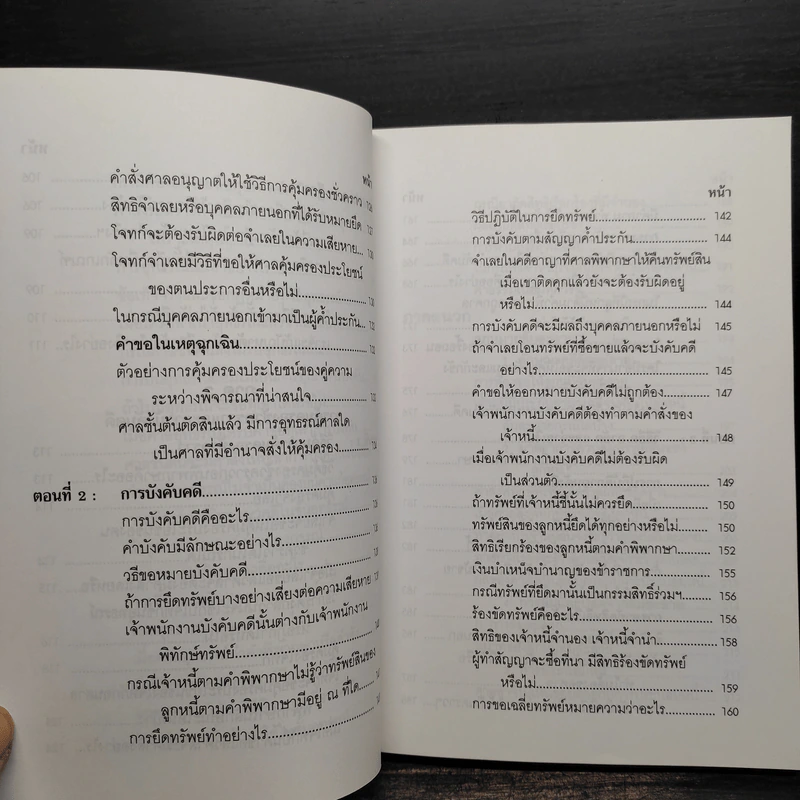 หน้า
คำสั่งศาลอนุญาตให้ใช้วิธีการคุ้มครองชั่วคราว
สิทธิจำเลยหรือบุคคลภายนอกที่ได้รับหมายยึด
โจทก์จะต้องรับผิดต่อจำเลยในความเสียหาย...
โจทก์จำเลยมีวิธีที่ขอให้ศาลคุ้มครองประโยชน์
ของตนประการอื่นหรือไม่
ในกรณีบุคคลภายนอกเข้ามาเป็นผู้ค้ำประกัน...
คำขอในเหตุฉุกเฉิน
ตัวอย่างการคุ้มครองประโยชน์ของคู่ความ
ระหว่างพิจารณาที่น่าสนใจ
ศาลชั้นต้นตัดสินแล้ว มีการอุทธรณ์ศาลใด
เป็นศาลที่มีอำนาจสั่งให้คุ้มครอง
ตอนที่ 2 : การบังคับคดี
การบังคับคดีคืออะไร
คำบังคับมีลักษณะอย่างไร
วิธีขอหมายบังคับคดี
ถ้าการยึดทรัพย์บางอย่างเสี่ยงต่อความเสียหาย
เจ้าพนักงานบังคับคดีนั้นต่างกับเจ้าพนักงาน
พิทักษ์ทรัพย์
กรณีเจ้าหนี้ตามคำพิพากษาไม่รู้ว่าทรัพย์สินของ
ลูกหนี้ตามคำพิพากษามีอยู่ ณ ที่ใด
การยึดทรัพย์ทำอย่างไร
หน้า
วิธีปฏิบัติในการยึดทรัพย์ 142
การบังคับตามสัญญาค้ำประกัน 144
จำเลยในคดีอาญาที่ศาลพิพากษาให้คืนทรัพย์สิน
เมื่อเขาติดคุกแล้วยังจะต้องรับผิดอยู่
หรือไม่ 144
การบังคับคดีจะมีผลถึงบุคคลภายนอกหรือไม่ 145
ถ้าจำเลยโอนทรัพย์ที่ซื้อขายแล้วจะบังคับคดี
อย่างไร 145
คำขอให้ออกหมายบังคับคดีไม่ถูกต้อง 147
เจ้าพนักงานบังคับคดีต้องทำตามคำสั่งของ
เจ้าหนี้ 148
เมื่อเจ้าพนักงานบังคับคดีไม่ต้องรับผิด
เป็นส่วนตัว 149
ถ้าทรัพย์ที่เจ้าหนี้ชี้นั้นไม่ควรยึด 150
ทรัพย์สินของลูกหนี้ยึดได้ทุกอย่างหรือไม่ 150
สิทธิเรียกร้องของลูกหนี้ตามคำพิพากษา 152
เงินบำเหน็จบำนาญของข้าราชการ 155
กรณีทรัพย์ที่ยึดมานั้นเป็นกรรมสิทธิ์ร่วมฯ 156
ร้องขัดทรัพย์คืออะไร 156
สิทธิของเจ้าหนี้จำนอง เจ้าหนี้จำนำ 158
ผู้ทำสัญญาจะซื้อที่นา มีสิทธิร้องขัดทรัพย์
หรือไม่ 159
การขอเฉลี่ยทรัพย์หมายความว่าอะไร 160